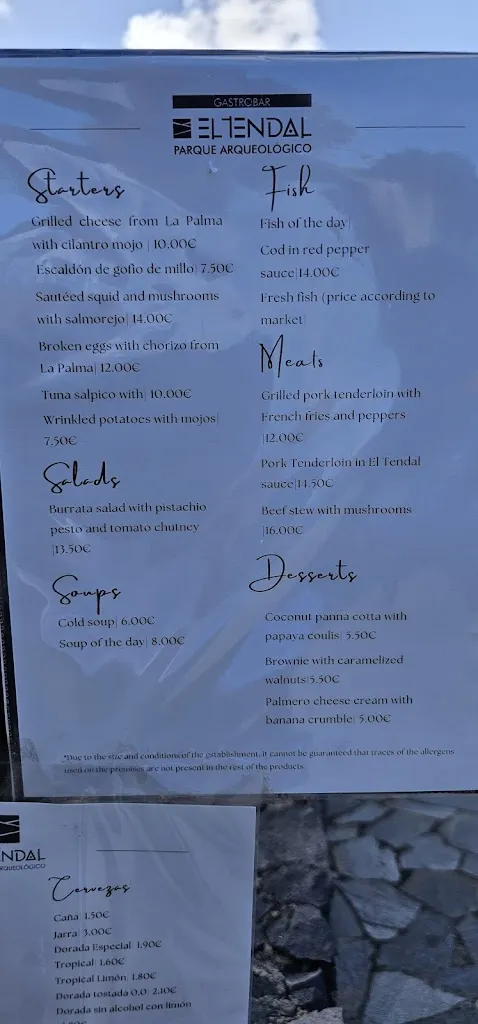 GASTROBAR
EL TENDAL
PARQUE ARQUEOLÓGICO
Starters
Grilled cheese from La Palma
with cilantro mojo | 10.00€
Escaldón de gofio de millo| 7.50€
Sautéed squid and mushrooms
with salmorejo| 14.00€
Broken eggs with chorizo from
La Palma| 12.00€
Tuna salpico with| 10.00€
Wrinkled potatoes with mojos|
7.50€
Salads
Burrata salad with pistachio
pesto and tomato chutney
|13.50€
Soups
Cold soup| 6.00€
Soup of the day| 8.00€
Fish
Fish of the day|
Cod in red pepper
sauce|14.00€
Fresh fish (price according to
market|
Meats
Grilled pork tenderloin with
French fries and peppers
|12.00€
Pork Tenderloin in El Tendal
sauce|14.50€
Beef stew with mushrooms
|16.00€
Desserts
Coconut panna cotta with
papaya coulis| 5.50€
Brownie with caramelized
walnuts|5.50€
Palmero cheese cream with
banana crumble| 5.00€
*Due to the size and conditions of the establishment, it cannot be guaranteed that traces of the allergens
used on the premises are not present in the rest of the products.
NDAL
RQUEOLÓGICO
Cervezas
Caña| 1.50€
Jarra| 3.00€
Dorada Especial| 1.90€
Tropical| 1.60€
Tropical Limón| 1.80€
Dorada tostada 0,0| 2.10€
Dorada sin alcohol con limón